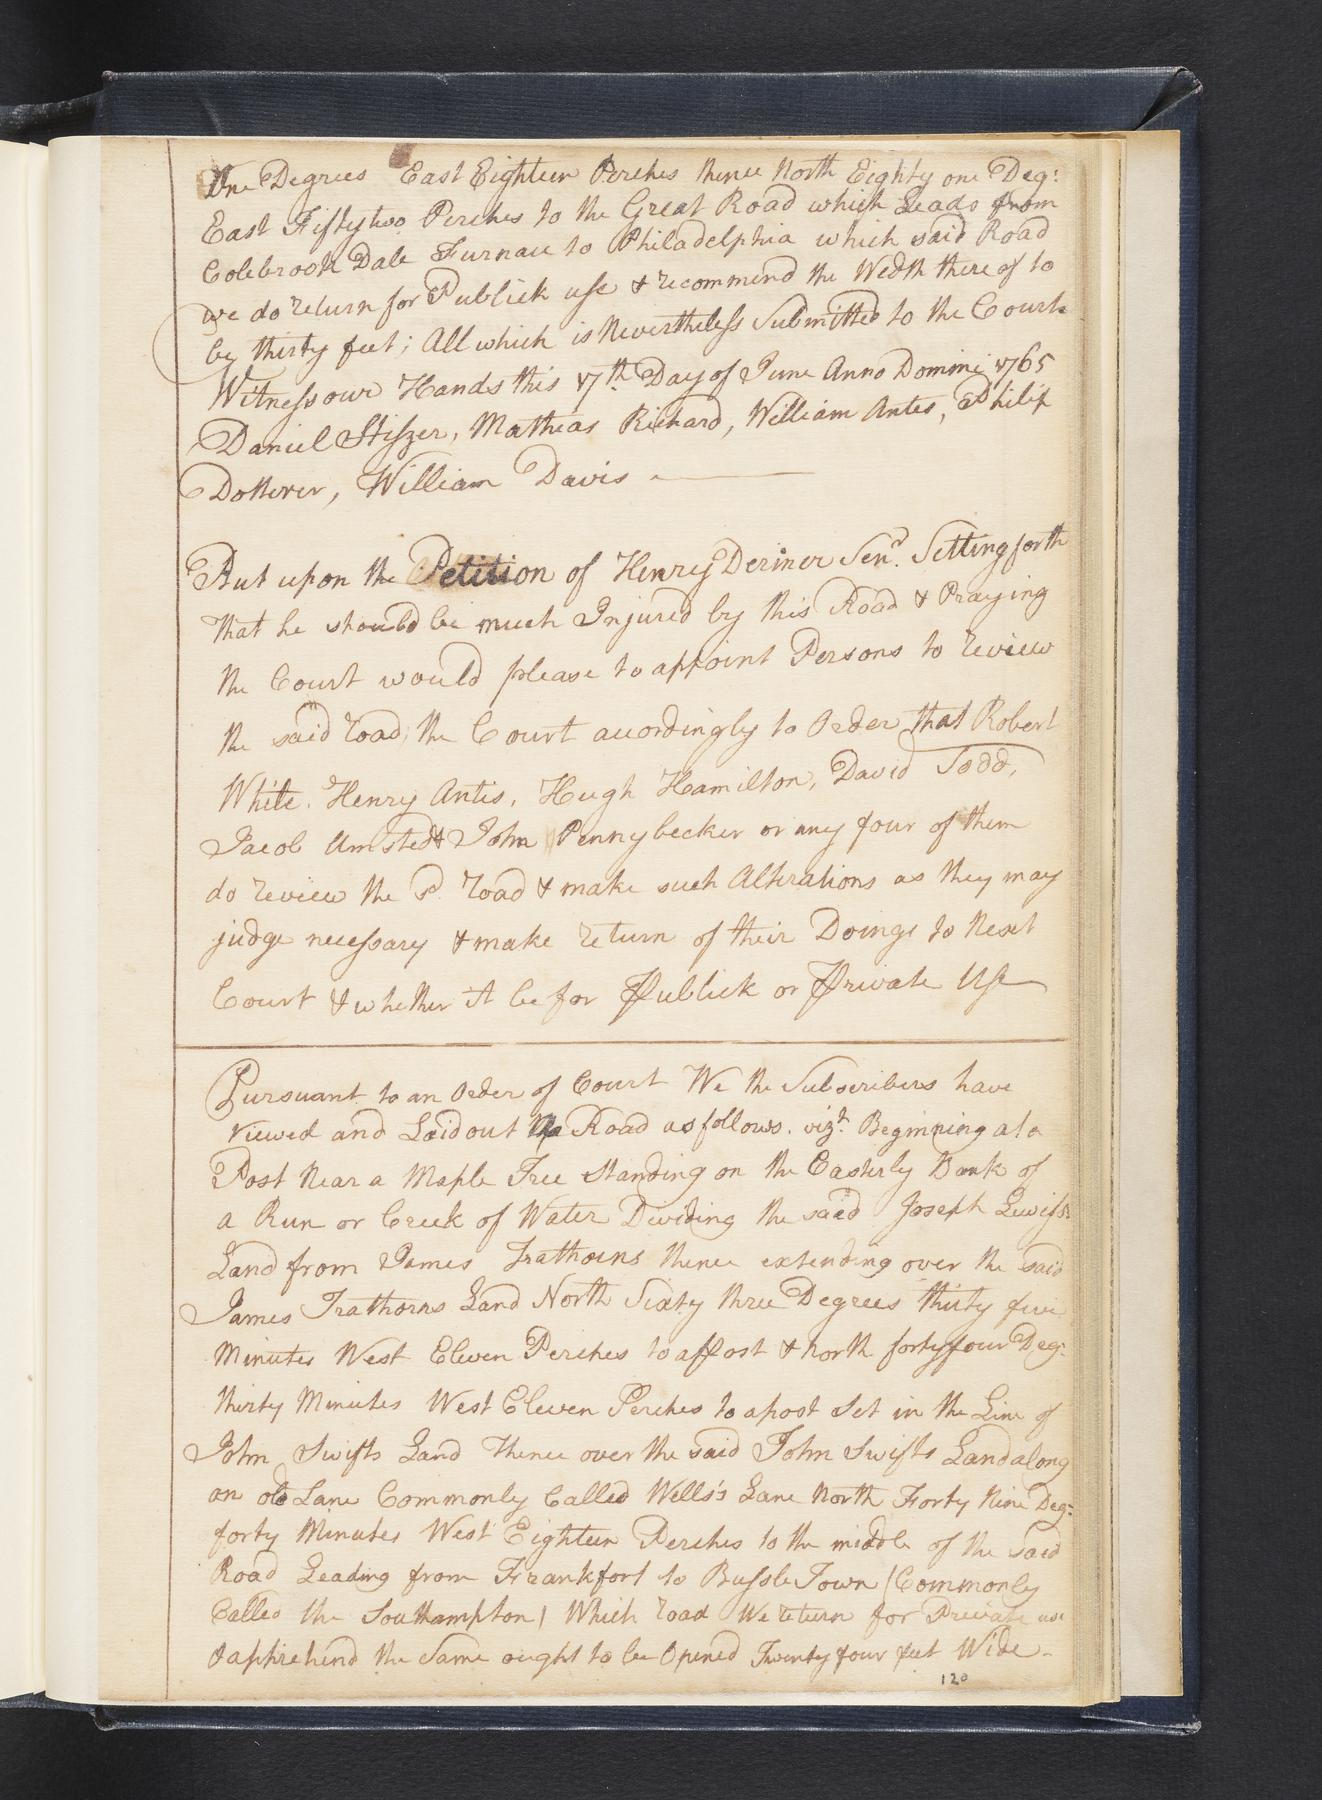 One Degrees East Eighteen Perches thence North Eighty one Deg:
East Fifty two Perches to the Great Road which Leads from
Colebrook Dale Furnace to Philadelphia which said Road
we do return for Publick use & recommend the Wedth there of to
be thirty feet; All which is Nevertheless Submitted to the Court.
Witness our Hands this 17th Day of June Anno Domini 1765
Daniel Stiszer, Mathias Richard, William Antes, Philip
Dotterer, William Davis
But upon the Petition of Henry Deriner Senr. Setting forth
that he should be much Injured by this Road & Praying
the Court would please to appoint Persons to review
the said road; the Court accordingly to Order that Robert
White, Henry Antis, Hugh Hamilton, David Todd,
Jacob Umstedt & John Pennybecker or any four of them
do review the sd. road & make such Alterations as they may
judge necessary & make return of their Doings to Next
Court & whether it be for Publick or Private Use
Pursuant to an Order of Court We the Subscribers have
viewed and Laid out Road as follows. vizt. Beginning at a
Post Near a Maple Tree standing on the Easterly Bank of
a Run or Creek of Water Dividing the said Joseph Lewis's
Land from James Trathorns thence extending over the said
James Trathorns Land North Sixty three Degrees thirty five
Minutes West Eleven Perches to a Post & north forty four Deg:
thirty Minutes West Eleven Perches to a post Set in the Line of
John Swifts Land Thence over the said John Swifts Land along
an old Lane Commonly Called Wells's Lane North Forty Nine Deg:
forty Minutes West Eighteen Perches to the middle of the said
Road Leading from Frankfort to Bussle Town (Commonly
Called the Southampton) Which road We return for Private use
& apprehend the Same ought to be Opened Twenty four feet Wide -
120